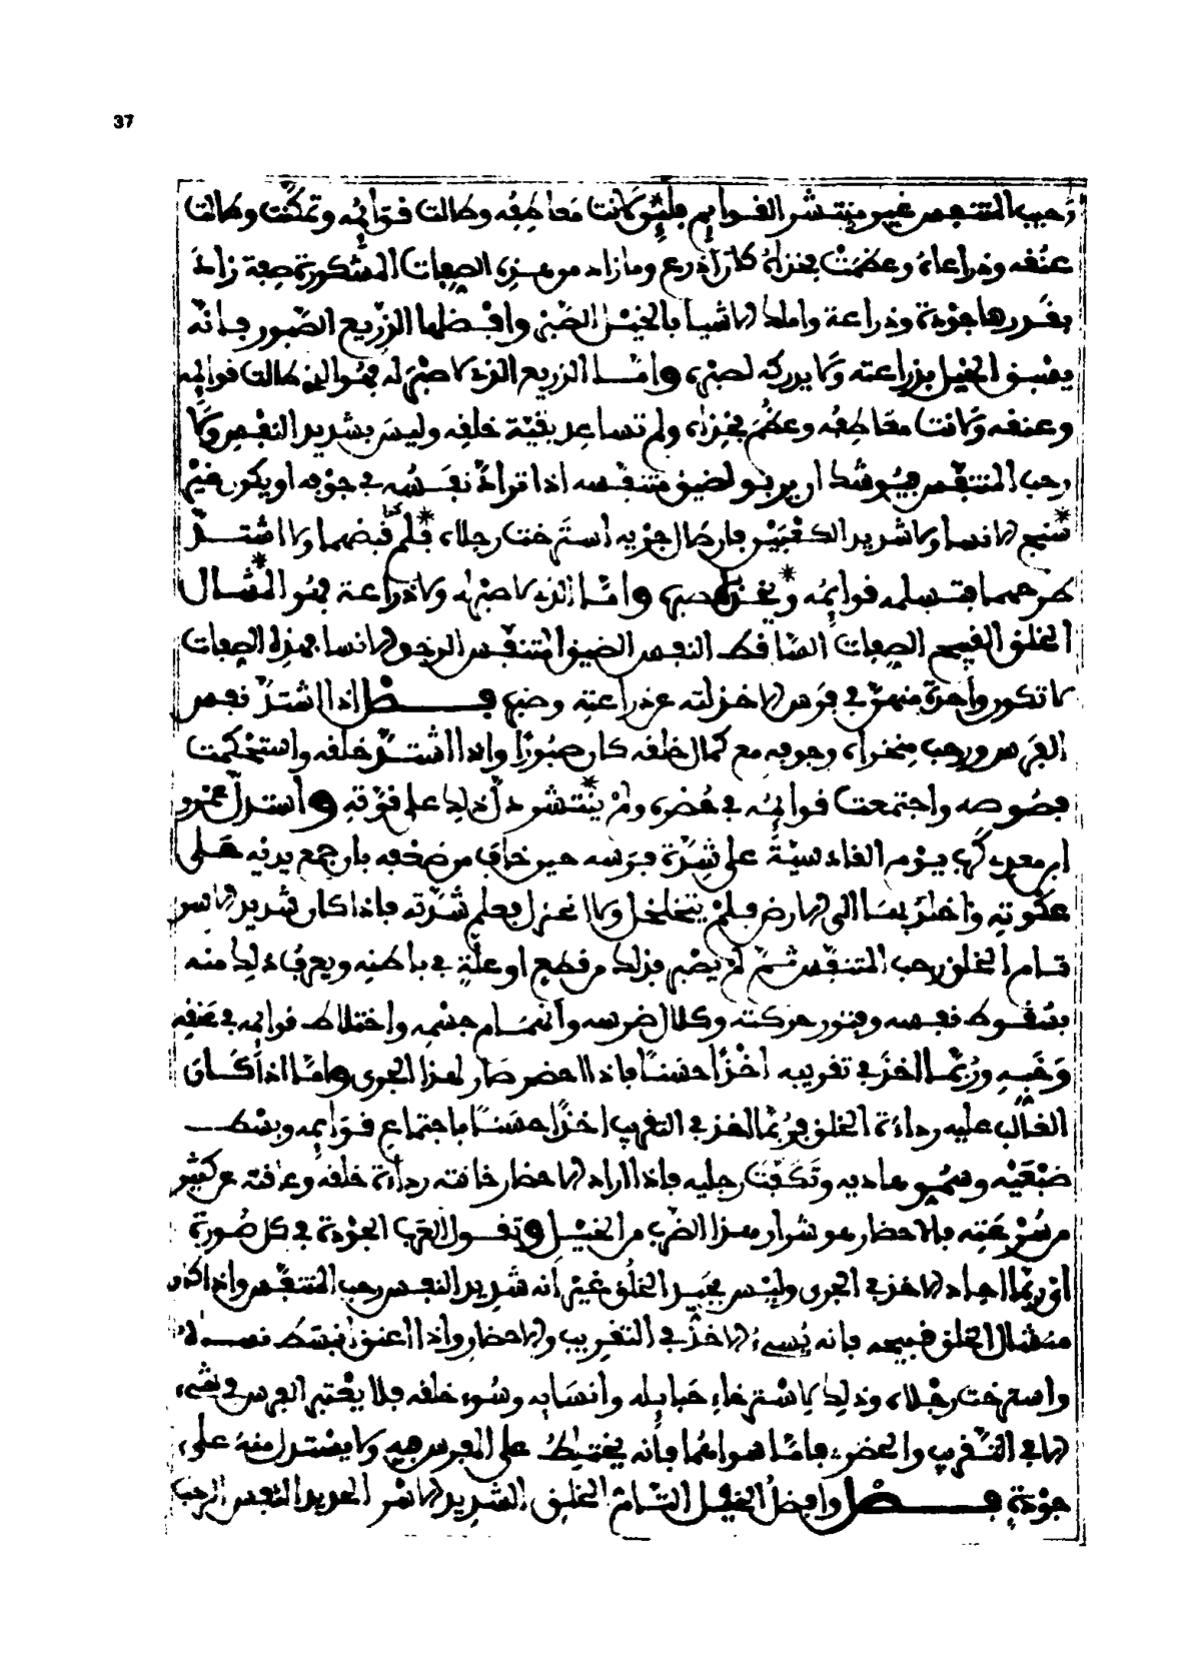 37
رحيب المتنفس غير منتشر القوايم فلين كانت معاطفه وطالت قوائمه وتمكنت وطالت
عنقه وذراعاه وعظمت فخذاه كان اذرع وما زاد من هذه الصفات المذكورة صفة زاد
بقدرها جودة وذراعة واملك الاشيا بالخيل الصبر وافضلها الذريع الصبور فانه
يسبق الخيل بذراعته ولا يدركه لصبره واما الذريع الذي لا صبر له فهو الذي طالت قوائمه
وعنقه وكانت معاطفه وعظم فخذاه ولم تساعد بقية خلقه وليس بشديد النفس ولا
رحب المتنفس فيوشك ان يربو لضيق متنفسه اذا تراد نفسه في جوفه او يكون غير
شنج الانسا ولا شديد الكعبين فان طال جريه استرخت رجلاه فلم قبضهما ولا اشتد
طرحهما فتسلمه قوايمه صبره واما الذي لا صبر له ولا ذراعة فهو
الخلق القبيح الصفات الساقط النفس الضيق المتنفس الرخو الانسا بهذه الصفات
لا تكون واحدة منهن في فرس الا خزلته عن ذراعته وصبره فصل اذا اشتد نفس
الفرس ورحب منخراه وجوفه مع كمال خلقه كان صبورا واذا اشتد خلقه واستحكمت
فصوصه واجتمعت قوائمه في حضره ولم ينتشر دل ذلك على قوته واستدل عمرو
ابن معدي كرب يوم القادسية على شدة فرسه حين خاف من ضعفه بان جمع يديه على
عكوته واخلد بها الى الارض فلم يتخلخل ولا انخزل فعلم شدته فاذا كان شديد الاسر
تام الخلق رحب المتنفس ثم لم يصبر فذلك من قطع او علة في باطنه ويعرف ذلك منه
بسقوط نفسه وفتور حركته وكلال ضرسه وانهضام جسمه واختلاط قوائمه في عنقه
وخببه وربما اخذ في تقريبه اخذا حسنا فاذا احضر صار لهذا الجرى واما اذا كان
الغالب عليه رداءة الخلق فربما اخذ في التقريب اخذا حسنا باجتماع قوايمه وبسط
ضبعيه وسمو هاديه وتكفت رجليه فاذا اراد الاحضار خانته رداءة خلقه وعاقته عن كثير
من سرعته فالاحضار هو شرار هذا الضرب من الخيل وتقول العرب الجودة في كل صورة
اي ربما اجاد الاخذ في الجرى وليس بجيد الخلق غير انه شديد النفس رحب المتنفس واذا كان
الخلق قبيحه فانه يسيء الاخذ في التقريب والاحضار واذا اعنق انبسط
واسترخت رجلاه وذلك لاسترخاء حبايله وانسابه وسوء خلقه فلا يختبر الفرس في شيء
الا في التقريب والحضر فاما سواهما فانه يختلط على المتفرس فيه ولا يستدل منه على
جودة فصل وافضل الخيل التام الخلق الشديد الاسر الحديد النفس الرحب